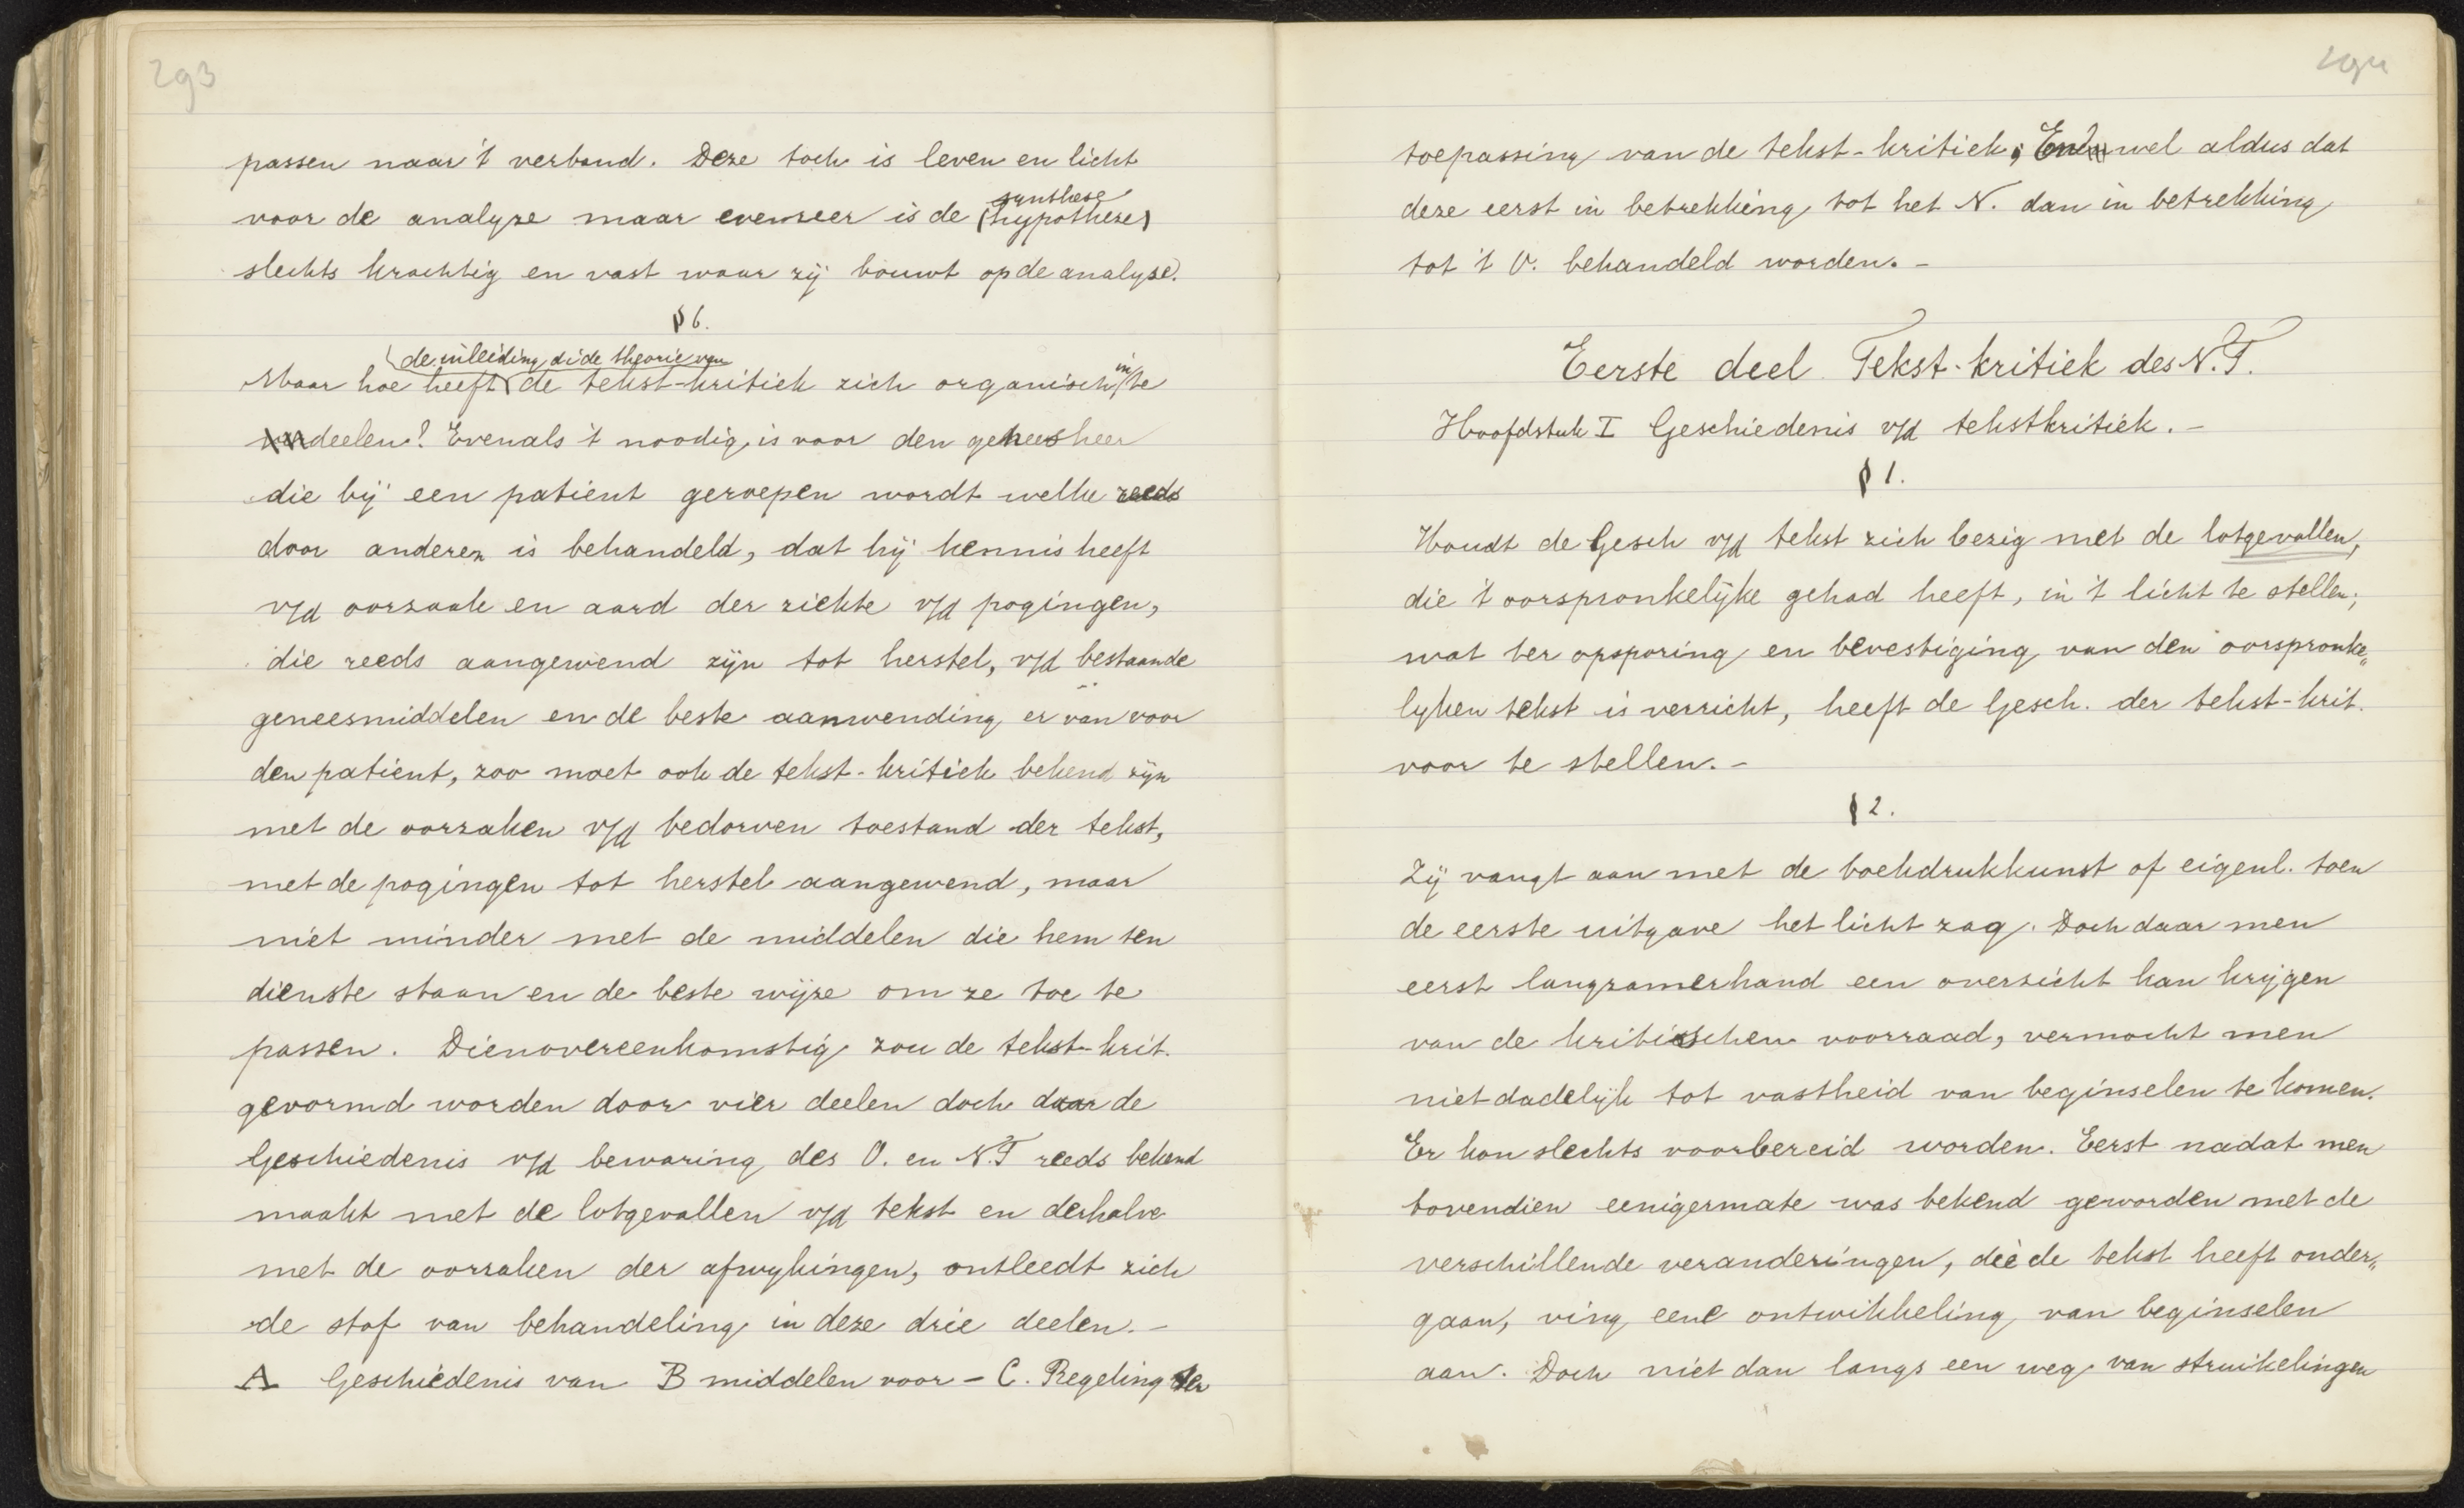 293
passen naar 't verband. Deze toch is leven en licht
synthese
voor de analyse maar evenzeer is de (hypothese)
slechts krachtig en vast waar zij bouwt op de analyse.
§ 6.
de inleiding, d.i. de theorie van
in
Maar hoe heeft de tekst-kritiek zich organisch te
deelen? Evenals 't noodig is voor den geneesheer
die bij een patient geroepen wordt welke reeds
door anderen is behandeld, dat hij kennis heeft
v/d oorzaak en aard der ziekte v/d pogingen,
die reeds aangewend zijn tot herstel, v/d bestaande
geneesmiddelen en de beste aanwending er van voor
den patient, zoo moet ook de tekst-kritiek bekend zijn
met de oorzaken v/d bedorven toestand der tekst,
met de pogingen tot herstel aangewend, maar
niet minder met de middelen die hem ten
dienste staan en de beste wijze om ze toe te
passen. Dienovereenkomstig zou de tekst-krit.
gevormd worden door vier deelen doch daar de
Geschiedenis v/d bewaring des O. en N.T reeds bekend
maakt met de lotgevallen v/d tekst en derhalve
met de oorzaken der afwykingen, ontleedt zich
de stof van behandeling in deze drie deelen. -
A Geschiedenis van B middelen voor - C. Regeling der
294
toepassing van de tekst-kritiek; En wel aldus dat
deze eerst in betrekking tot het N. dan in betrekking
tot 't O. behandeld worden. -
Eerste deel Tekst-kritiek des N.T.
Hoofdstuk I Geschiedenis v/d tekstkritiek. -
§ 1.
Houdt de Gesch v/d tekst zich bezig met de lotgevallen,
die 't oorspronkelijke gehad heeft, in 't licht te stellen;
wat ter opsporing en bevestiging van den oorspronke„
lyken tekst is verricht, heeft de Gesch. der tekst-krit.
voor te stellen. -
§ 2.
Zij vangt aan met de boekdrukkunst of eigenl. toen
de eerste uitgave het licht zag. Doch daar men
eerst langzamerhand een overzicht kan krijgen
van de kritischen voorraad, vermocht men
niet dadelijk tot vastheid van beginselen te komen.
Er kon slechts voorbereid worden. Eerst nadat men
bovendien eenigermate was bekend geworden met de
verschillende veranderingen, die de tekst heeft onder„
gaan, ving eene ontwikkeling van beginselen
aan. Doch niet dan langs een weg van struikelingen